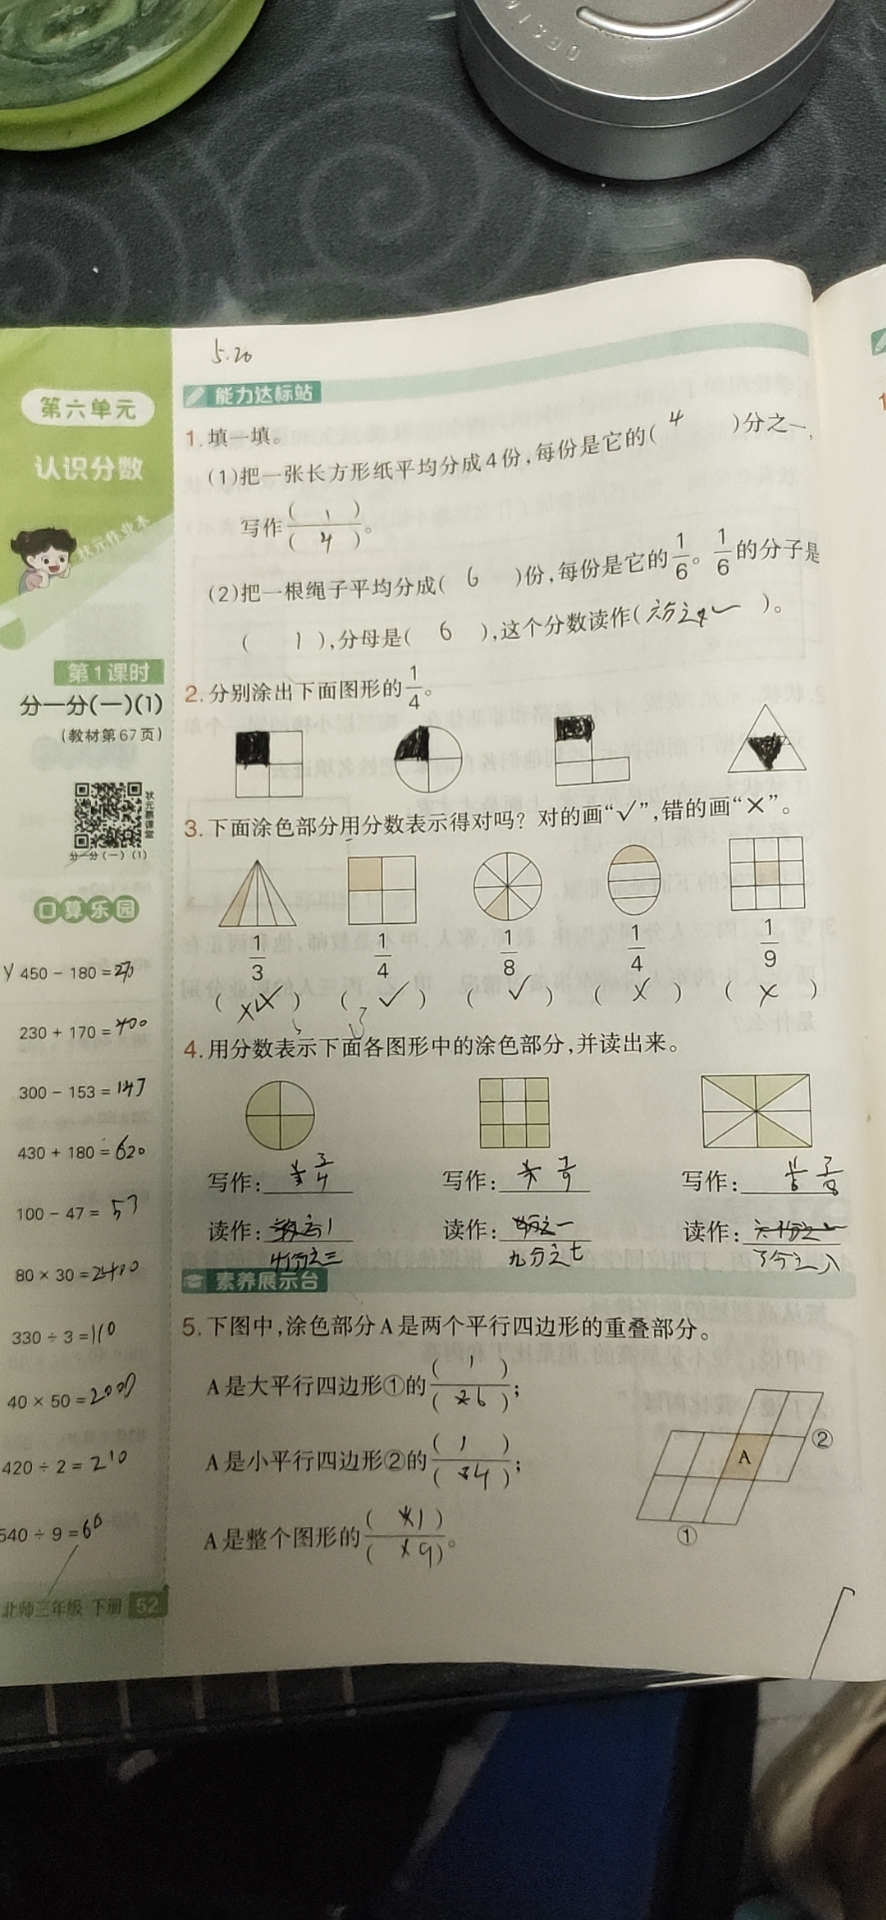 ORGINI
5.20
第六单元
认识分数
状元作业本
第1课时
分一分(一)(1)
(教材第67页)
状元慧课堂
分一分(一)(1)
口算乐园
450 - 180 = 270
230 + 170 = 400
300 - 153 = 147
430 + 180 = 620
100 - 47 = 53
80 × 30 = 2400
330 ÷ 3 = 110
40 × 50 = 2000
420 ÷ 2 = 210
540 ÷ 9 = 60
北师三年级 下册 52
能力达标站
1.填一填。
(1)把一张长方形纸平均分成4份,每份是它的( 4 )分之一,
写作( 1 )/( 4 )。
(2)把一根绳子平均分成( 6 )份,每份是它的1/6。1/6的分子是
( 1 ),分母是( 6 ),这个分数读作( 六分之一 )。
2.分别涂出下面图形的1/4。
3.下面涂色部分用分数表示得对吗?对的画“√”,错的画“×”。
1/3 1/4 1/8 1/4 1/9
( × ) ( √ ) ( √ ) ( × ) ( × )
4.用分数表示下面各图形中的涂色部分,并读出来。
写作: 3/4 写作: 7/9 写作: 3/8
读作: 读作: 读作:
四分之三 九分之七 3分之八
素养展示台
5.下图中,涂色部分A是两个平行四边形的重叠部分。
A是大平行四边形①的( 1 )/( 6 );
A是小平行四边形②的( 1 )/( 4 );
A是整个图形的( 1 )/( 9 )。
A
②
①